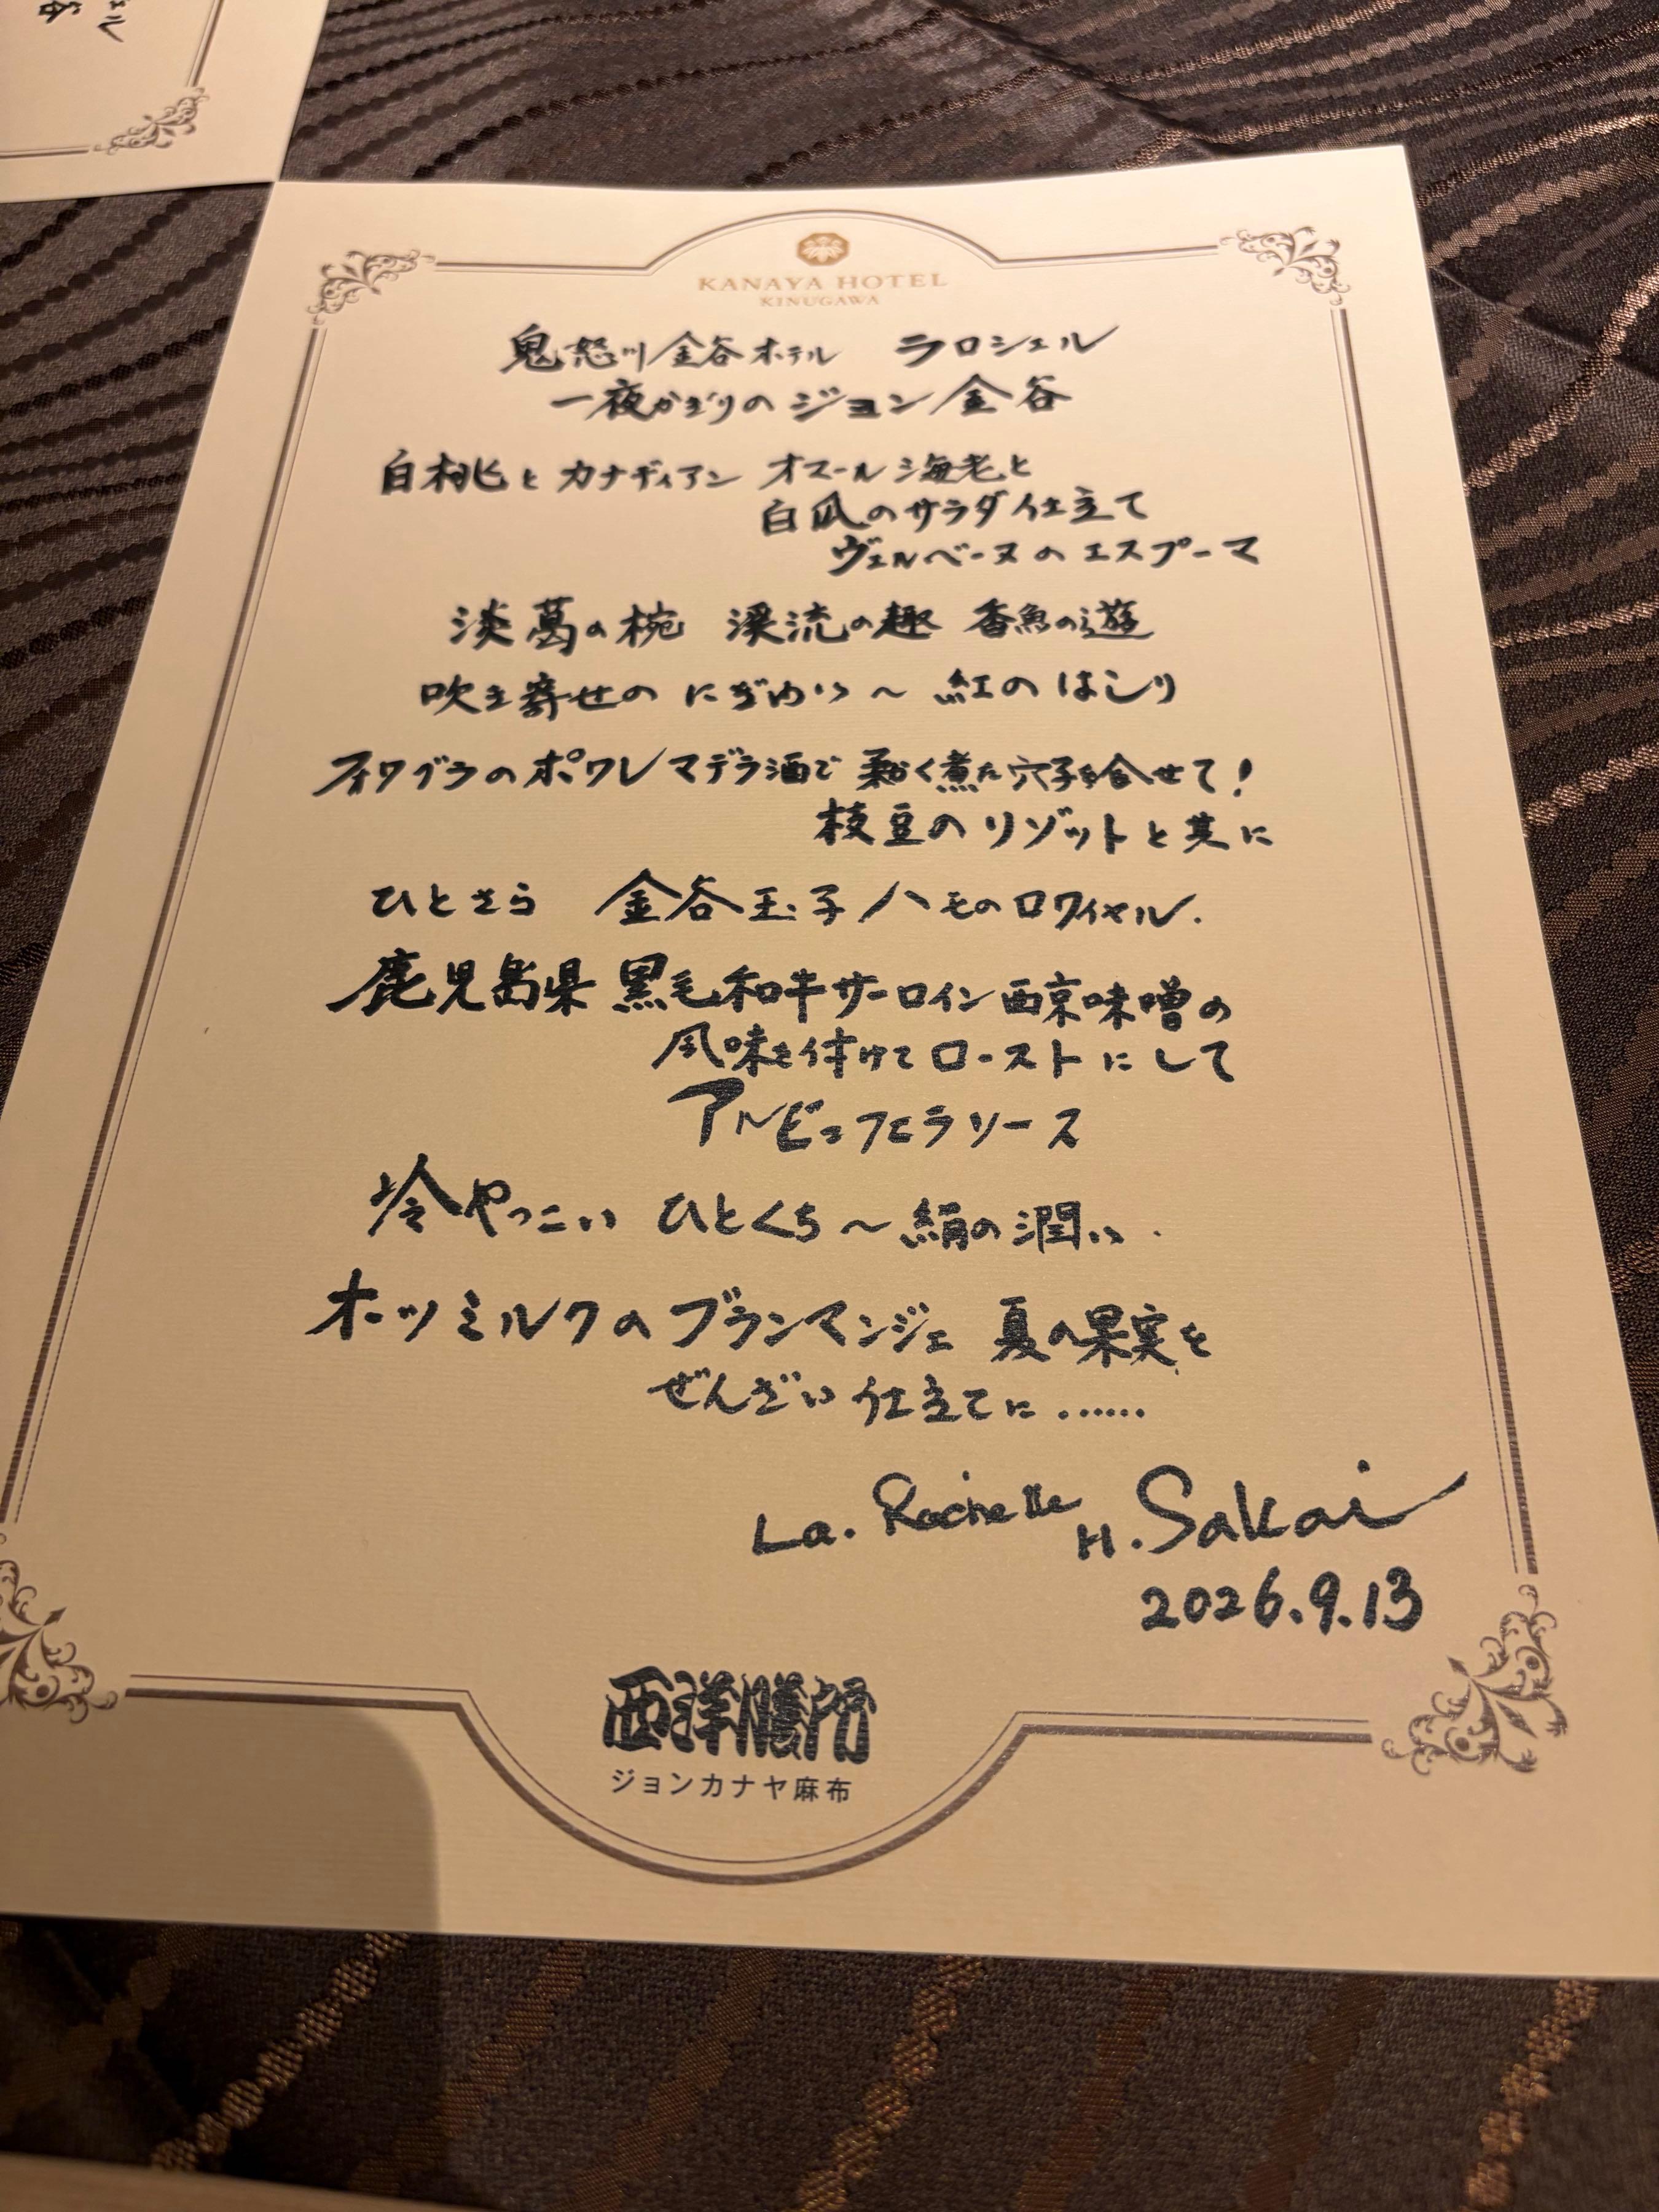 KANAYA HOTEL
KINUGAWA
鬼怒川金谷ホテル ラロシェル
一夜かぎりのジョン金谷
白桃とカナディアン オマール海老と
白瓜のサラダ仕立て
ヴェルベーヌのエスプーマ
淡葛の椀 渓流の趣 香魚の遊
吹き寄せの にぎわい〜 紅のはしり
フォワグラのポワレ マデラ酒で 柔かく煮た穴子を合せて!
枝豆のリゾットと共に
ひとさら 金谷玉子 ハモのロワイヤル.
鹿児島県 黒毛和牛サーロイン 西京味噌の
風味を付けてローストにして
アルビュフェラソース
冷やっこい ひとくち〜絹の潤い.
ホーツミルクのブランマンジェ 夏の果実を
ぜんざい仕立てに......
La. Rochelle H. Sakai
2026.9.13
西洋膳所
ジョンカナヤ麻布